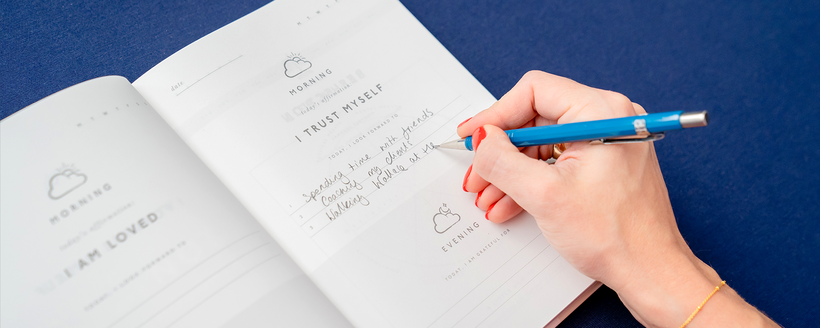 MORNING
today's affirmation
I AM LOVED
TODAY, I LOOK FORWARD TO
date
MORNING
today's affirmation
I TRUST MYSELF
TODAY, I LOOK FORWARD TO
1 Spending time with friends
2 Coaching my clients
3 Walking Wallace at the
EVENING
TODAY, I AM GRATEFUL FOR